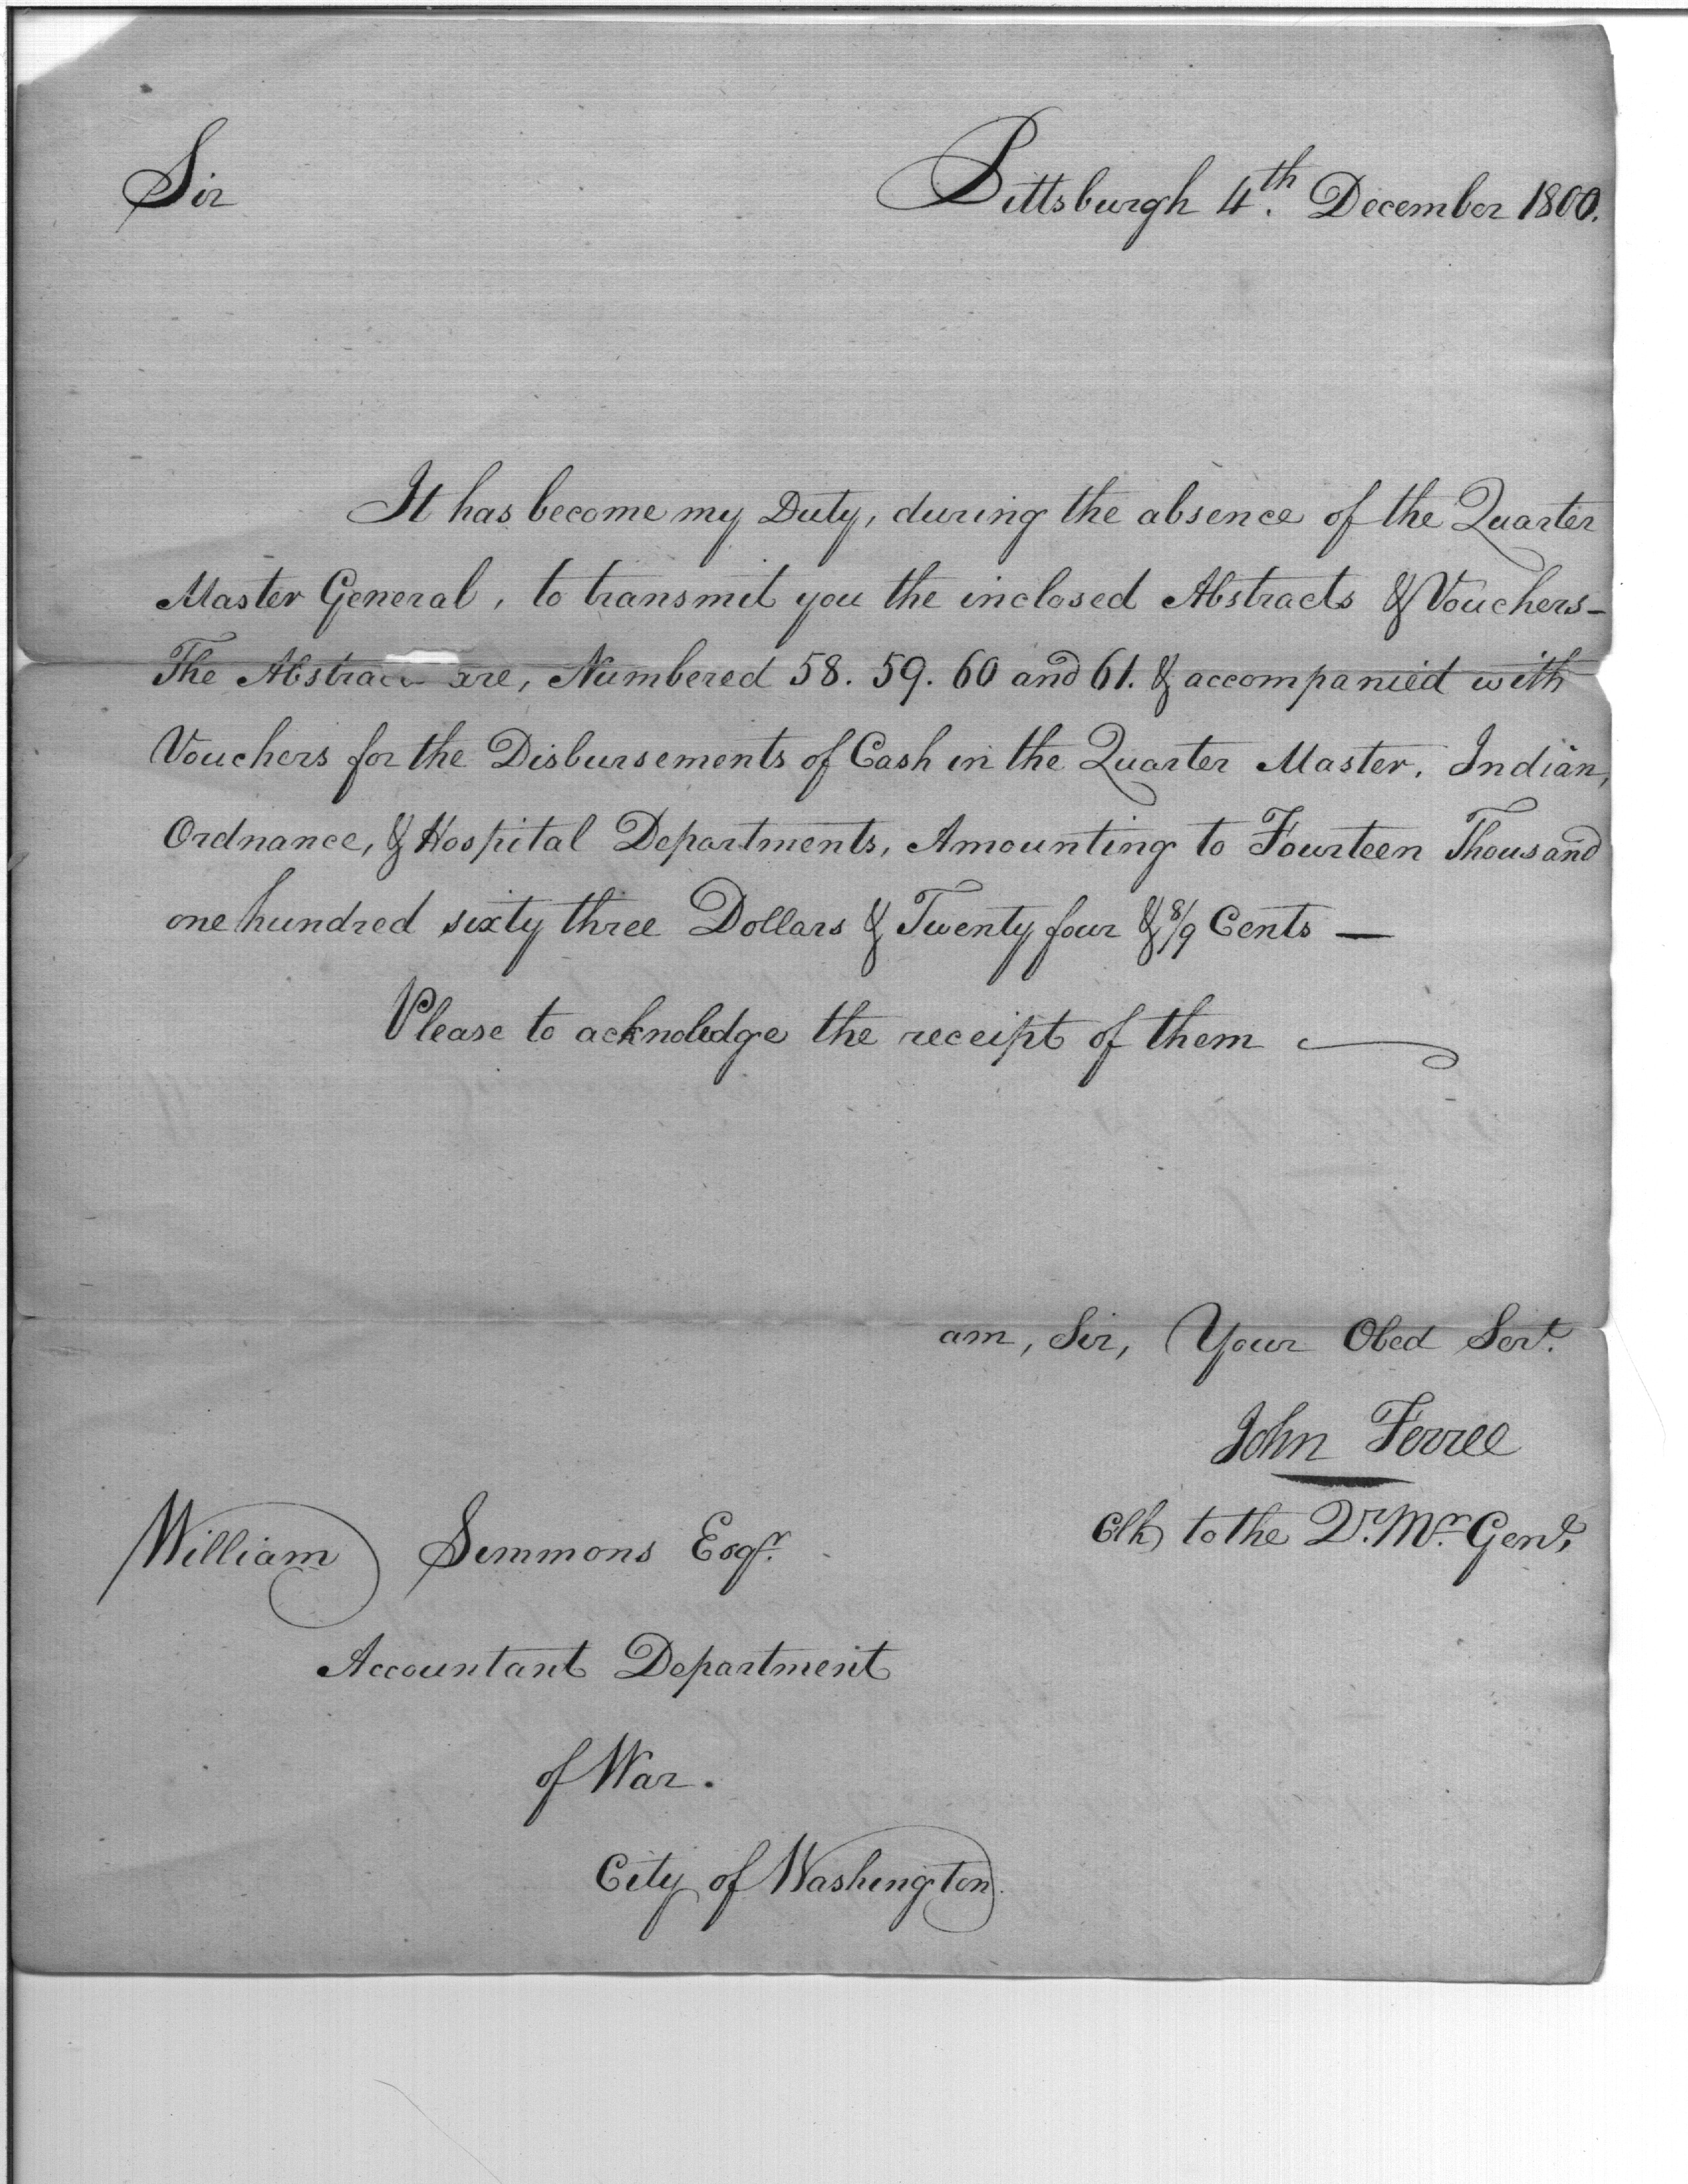 Sir
Pittsburgh 4th. December 1800.
It has become my Duty, during the absence of the Quarter
Master General, to transmit you the inclosed Abstracts & Vouchers-
The Abstrac are, Numbered 58. 59. 60 and 61. & accompanied with
Vouchers for the Disbursements of Cash in the Quarter Master, Indian,
Ordnance, & Hospital Departments, Amounting to Fourteen Thousand
one hundred sixty three Dollars & Twenty four & 8/9 Cents —
Please to acknoledge the receipt of them
am, Sir, Your Obed Servt.
John Ferree
Clk to the Qr. Mr. Genl,
William Simmons Esqr.
Accountant Department
of War.
City of Washington.